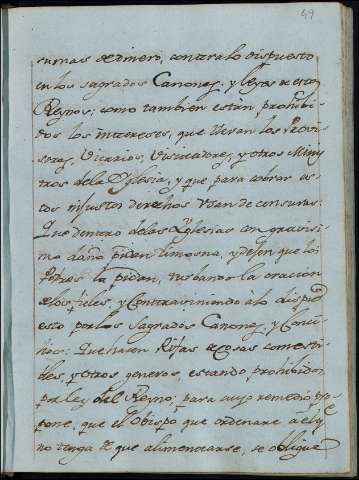 49
sumas de dinero, contra lo dispuesto
en los sagrados Canones, y leyes de estos
Reynos; como tambien están prohibi-
dos los intereses, que llevan los Provi-
sores, Vicarios, Visitadores, y otros Minis-
tros de la Yglesia, y que, para cobrar es-
tos injustos derechos usan de censuras:
Que dentro de las Yglesias con gravisi-
mo daño piden limosna, y dejan que los
Pobres la pidan, turbando la oracion
de los fieles, y contraviniendo á lo disp
esto por los sagrados Canones, y Conci-
lios: Que hacen Rifas de cosas comesti-
bles, y otros generos, estando prohibidos
por ley del Reyno; para cuyo remedio, 
pone, que el Obispo que ordenare a el q
no tenga de que alimentarse, se obligue